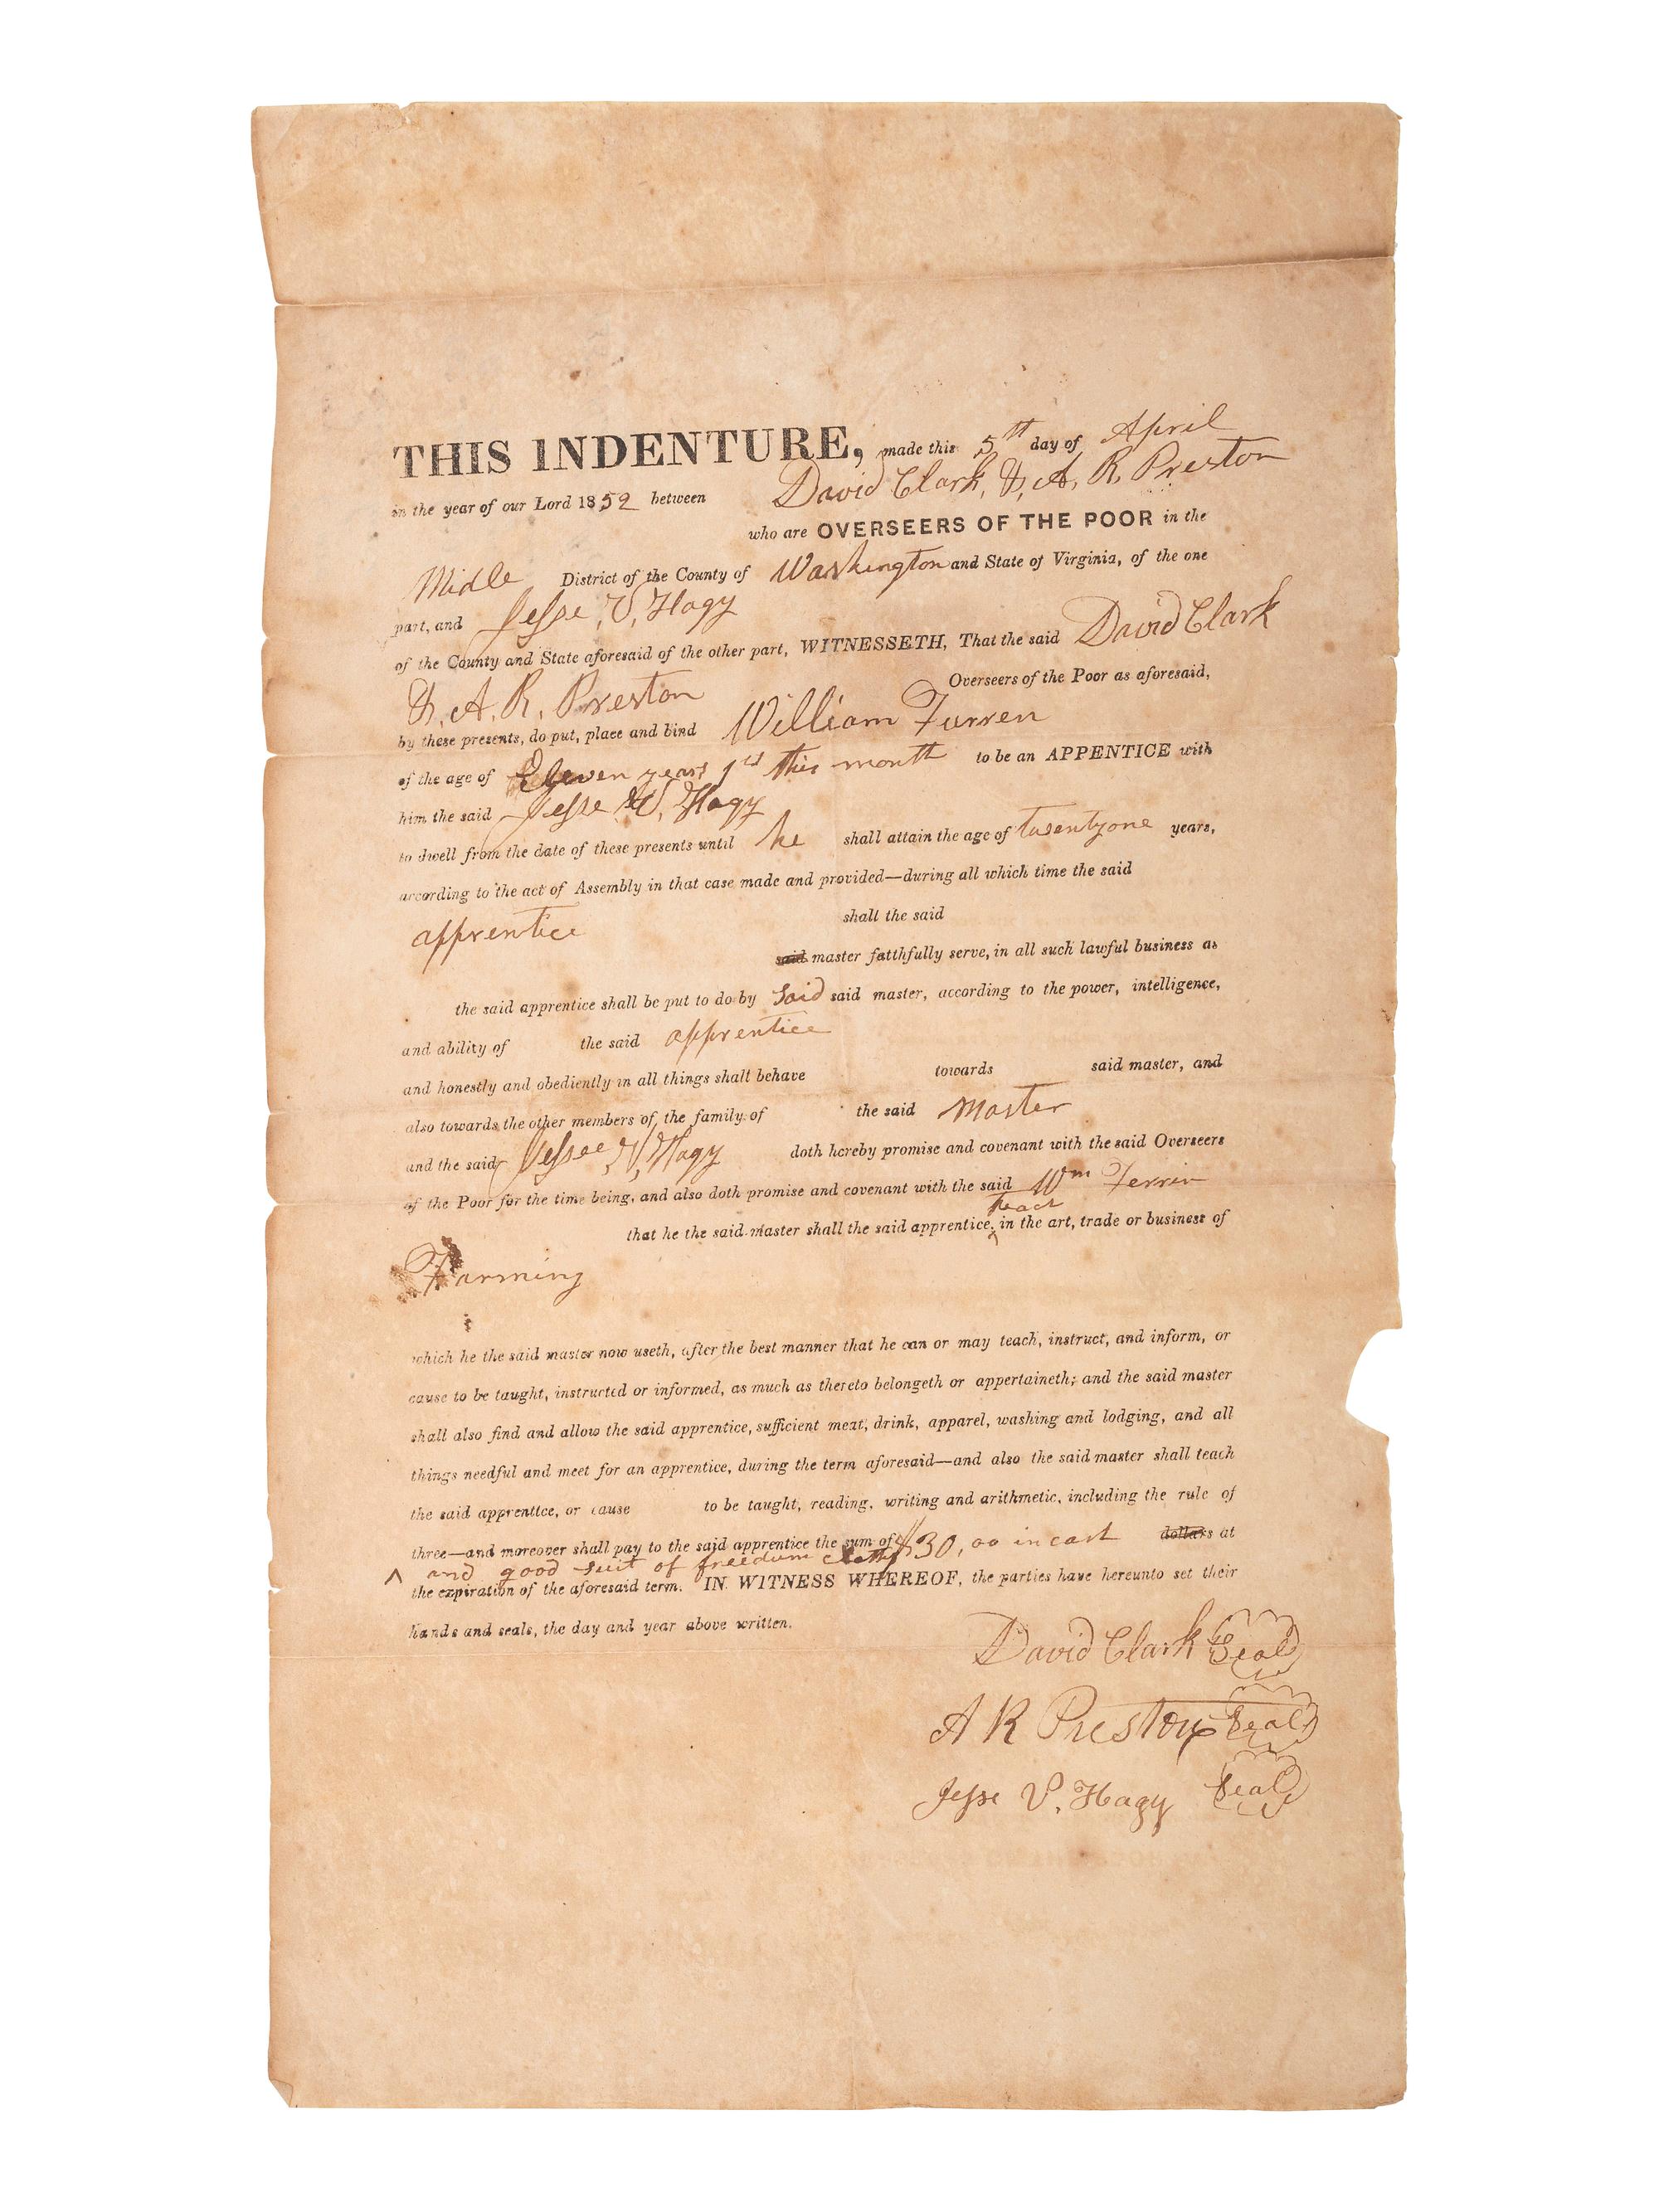 THIS INDENTURE, made this 5th day of April
in the year of our Lord 1852 between David Clark, &, A, R, Preston
who are OVERSEERS OF THE POOR in the
Midle District of the County of Washington and State of Virginia, of the one
part, and Jesse, V, Hagy
of the County and State aforesaid of the other part, WITNESSETH, That the said David Clark
&, A, R, Preston Overseers of the Poor as aforesaid,
by these presents, do put, place and bind William Furren
of the age of Eleven years 1st this month to be an APPENTICE with
him the said Jesse V, Hagy
to dwell from the date of these presents until he shall attain the age of twentyone years,
according to the act of Assembly in that case made and provided—during all which time the said
apprentice shall the said
said master fatthfully serve, in all such lawful business as
the said apprentice shall be put to do by said said master, according to the power, intelligence,
and ability of the said apprentice
and honestly and obediently in all things shall behave towards said master, and
also towards the other members of the family of the said Master
and the said Jessee, V, Hagy doth hereby promise and covenant with the said Overseers
of the Poor for the time being, and also doth promise and covenant with the said Wm Ferrin
teach
that he the said master shall the said apprentice, ^ in the art, trade or business of
Farming
which he the said master now useth, after the best manner that he can or may teach, instruct, and inform, or
cause to be taught, instructed or informed, as much as thereto belongeth or appertaineth; and the said master
shall also find and allow the said apprentice, sufficient meat, drink, apparel, washing and lodging, and all
things needful and meet for an apprentice, during the term aforesaid—and also the said master shall teach
the said apprentice, or cause to be taught, reading, writing and arithmetic, including the rule of
three—and moreover shall pay to the said apprentice the sum of $30,00 in cash dollars at
^ and good suit of freedum cloths
the expiration of the aforesaid term. IN WITNESS WHEREOF, the parties have hereunto set their
hands and seals, the day and year above written.
David Clark Seal
A R Preston Seal
Jesse V. Hagy Seal